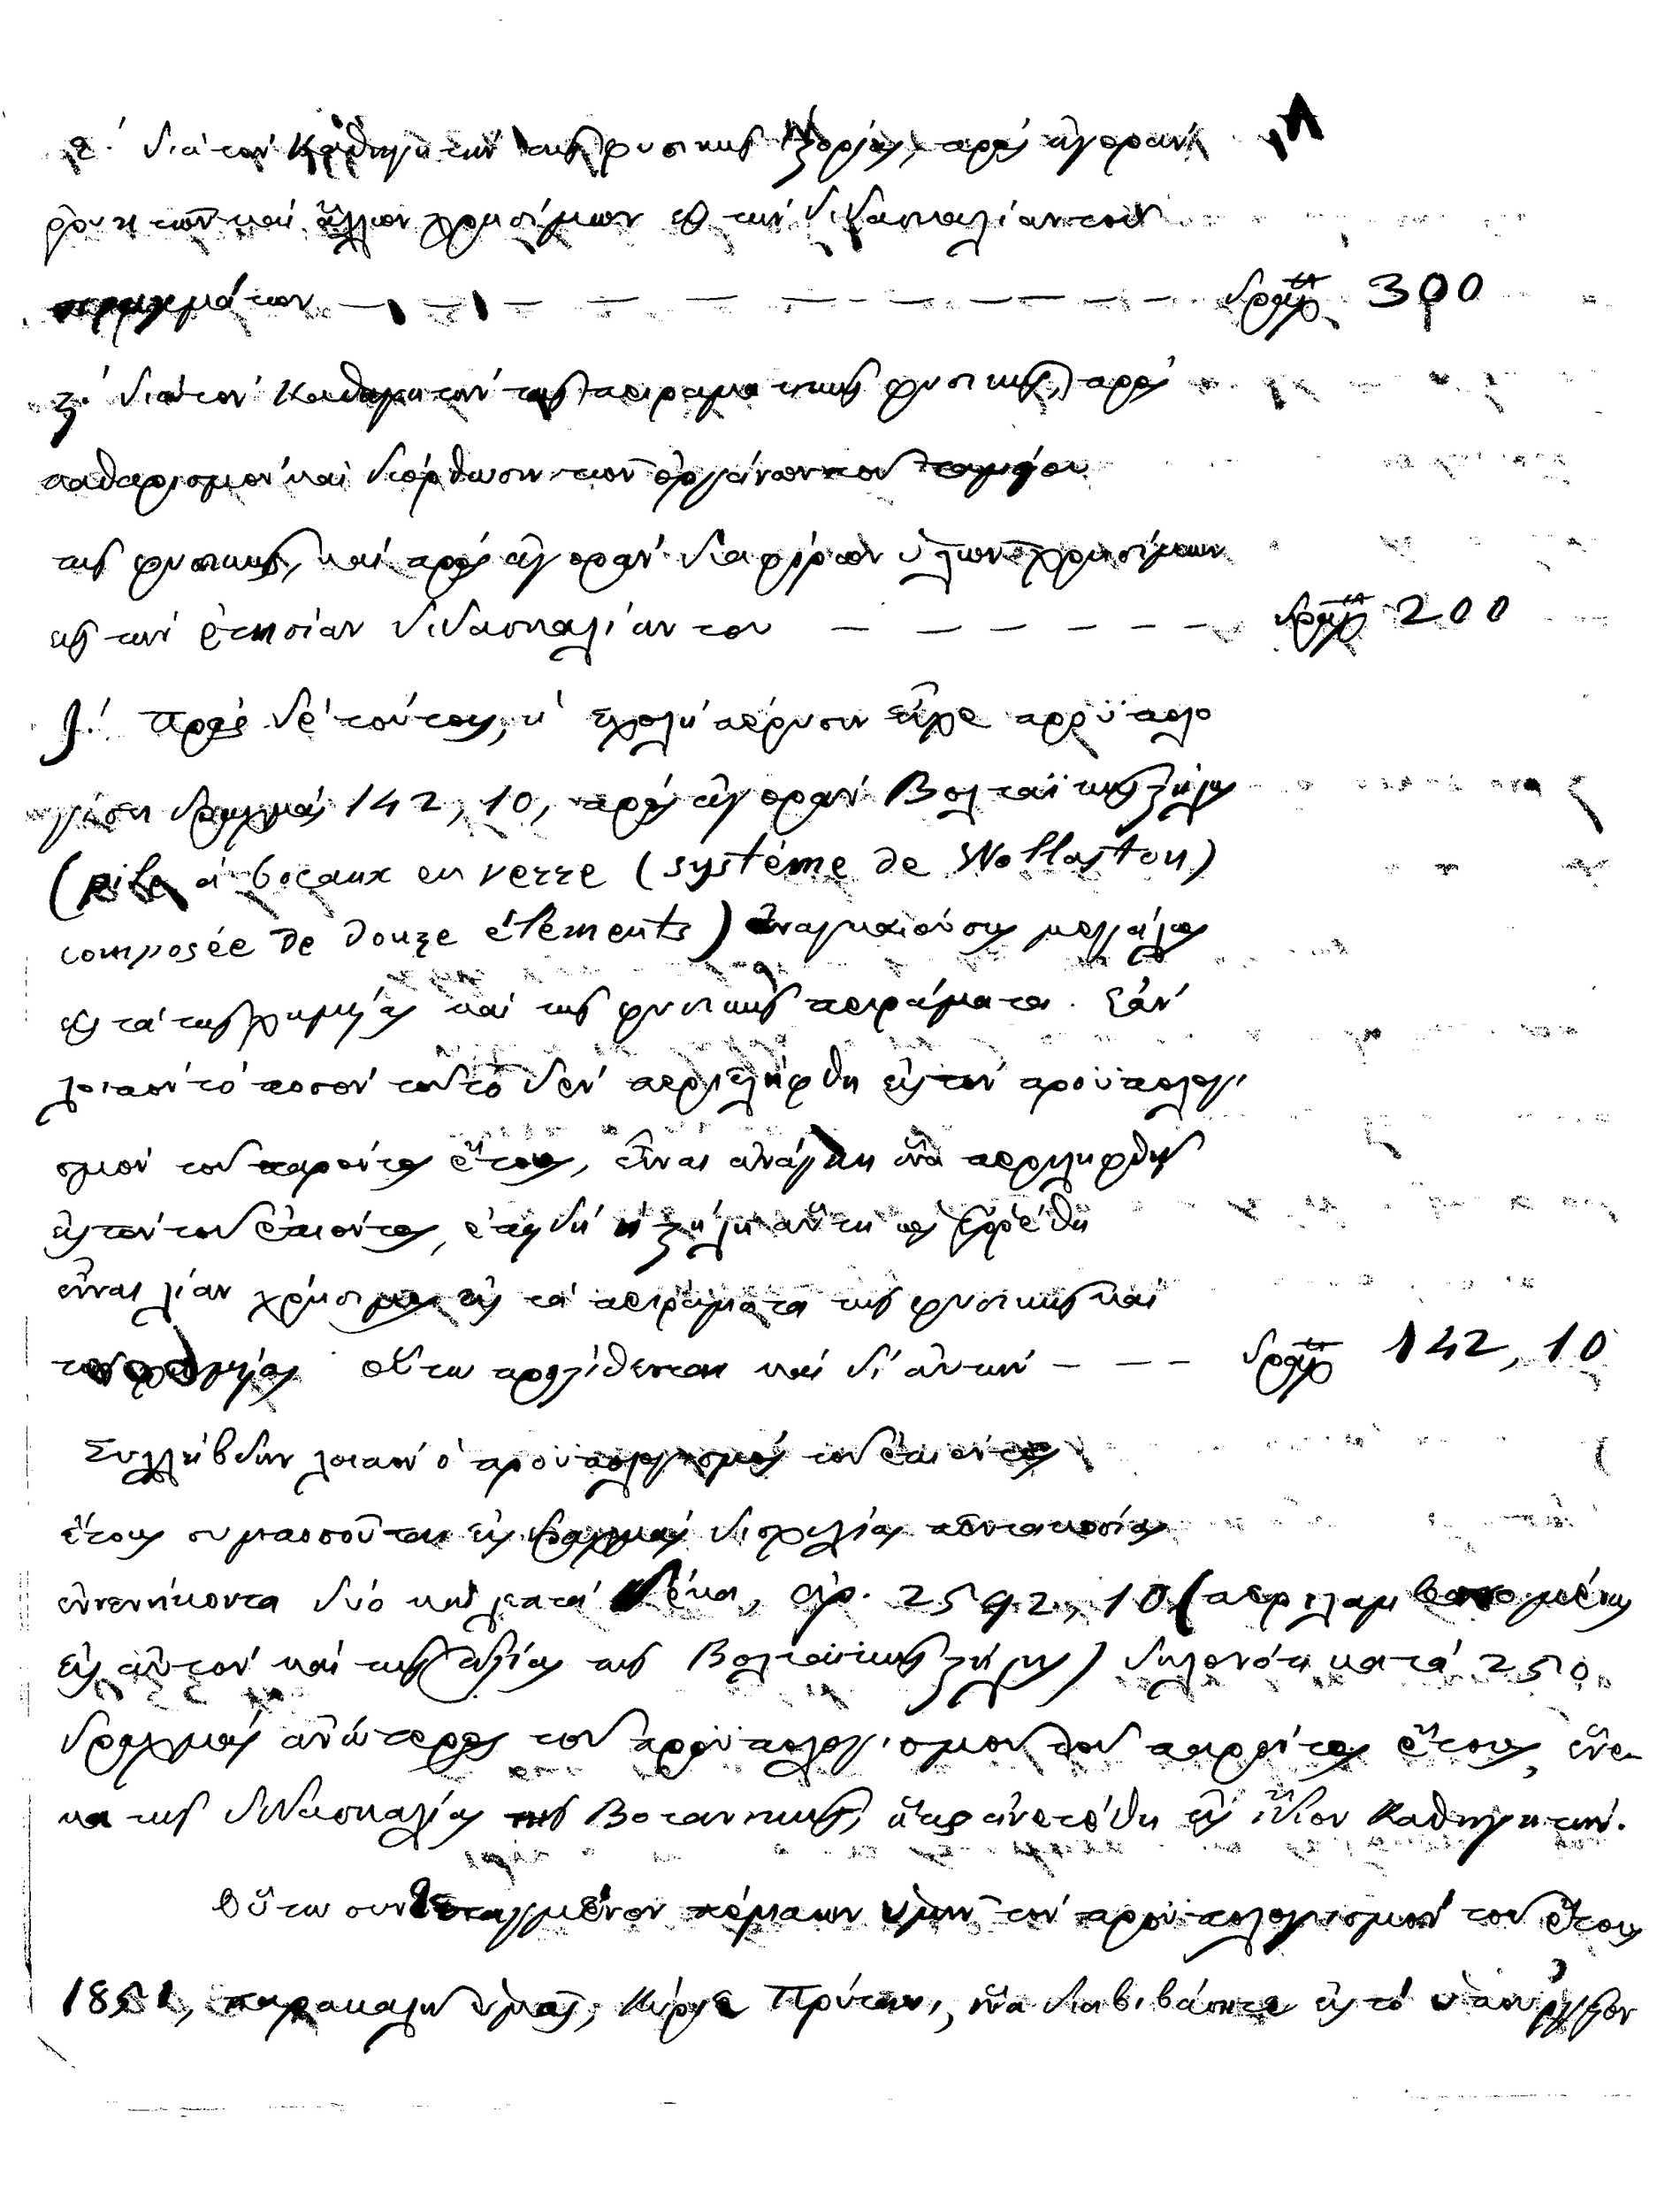 ε΄. διὰ τὸν Καθηγητὴν τῆς φυσικῆς Ἱστορίας, πρὸς ἀγορὰν
καὶ ἄλλων χρησίμων εἰς τὴν διδασκαλίαν του
πραγμάτων — — — — — — — — — — δραχ. 300
ζ΄. διὰ τὸν Καθηγητὴν τῆς πειραματικῆς φυσικῆς, πρὸς
καθαρισμὸν καὶ διόρθωσιν τῶν ὀργάνων τοῦ ταμείου
τῆς φυσικῆς, καὶ πρὸς ἀγορὰν διαφόρων ὑλικῶν χρησίμων
εἰς τὴν ἐτησίαν διδασκαλίαν του — — — — — — δραχ. 200
Πρὸς δὲ τούτοις, ἡ σχολὴ πέρυσιν εἶχε προϋπολο
γίσει δραχμὰς 142, 10, πρὸς ἀγορὰν Βολταϊκῆς στήλης
(pile à bocaux en verre (système de Wollaston)
composée de douze éléments) ἀναγκαιούσης μεγάλως
εἰς τὰ τῆς χημείας καὶ τῆς φυσικῆς πειράματα. Ἐὰν
λοιπὸν τὸ ποσὸν τοῦτο δὲν περιελήφθη εἰς τὸν προϋπολογι
σμὸν τοῦ παρόντος ἔτους, εἶναι ἀνάγκη ἵνα περιληφθῇ
εἰς τὸν τοῦ ἐπιόντος, ἐπειδὴ ἡ στήλη αὕτη ὡς ἐῤῥέθη
εἶναι λίαν χρήσιμος εἰς τὰ πειράματα τῆς φυσικῆς καὶ
τῆς χημείας οὕτω προστίθενται καὶ δι' αὐτὴν — — — δραχ. 142, 10
Συλλήβδην λοιπὸν ὁ προϋπολογισμὸς τοῦ ἐπιόντος
ἔτους συμποσοῦται εἰς δραχμὰς δισχιλίας πεντακοσίας
ἐννενήκοντα δύο καὶ λεπτὰ δέκα, δρ. 2592, 10 (περιλαμβανομένης
εἰς αὐτὸν καὶ τῆς ἀξίας τῆς Βολταϊκῆς στήλης) δηλονότι κατὰ 250
δραχμὰς ἀνώτερος τοῦ προϋπολογισμοῦ τοῦ παρόντος ἔτους, ἕνε
κα τῆς διδασκαλίας τῆς Βοτανικῆς, ἥτις ἀνετέθη εἰς ἴδιον Καθηγητήν.
Οὕτω συντεταγμένον πέμπων ὑμῖν τὸν προϋπολογισμὸν τοῦ ἔτους
1851, παρακαλῶ ὑμᾶς, Κύριε Πρύτανι, ἵνα διαβιβάσητε εἰς τὸ ὑπουργεῖον